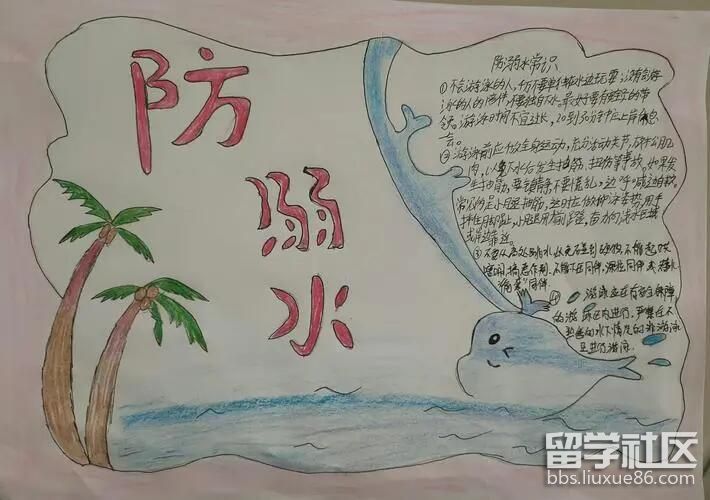 防
溺
水
防溺水常识
①不会游泳的人，千万不要单独在水边玩耍；没有会游
泳的人的陪伴，不要独自下水。最好要有
游泳时间不宜过长，20到30分钟应上岸休息
一会。
②游泳前应做全身运动，充分活动关节，放松肌
肉，以免下水后发生抽筋、扭伤等事故。如果发
生抽筋，要镇静，不要慌乱，边呼喊边自救。
常见的是小腿抽筋，这时应做仰泳姿势，用手
扳住脚趾，小腿用力前蹬，奋力向浅水区
或岸边靠近。
③不要从高处跳水，以免
搞恶作剧，不能下压同伴，深拉同伴，或潜水
“偷袭”同伴
④ 游泳应在有安全保障
的游泳区内进行，严禁在
非游泳
区进行游泳。
留学社区
bbs.liuxue86.com